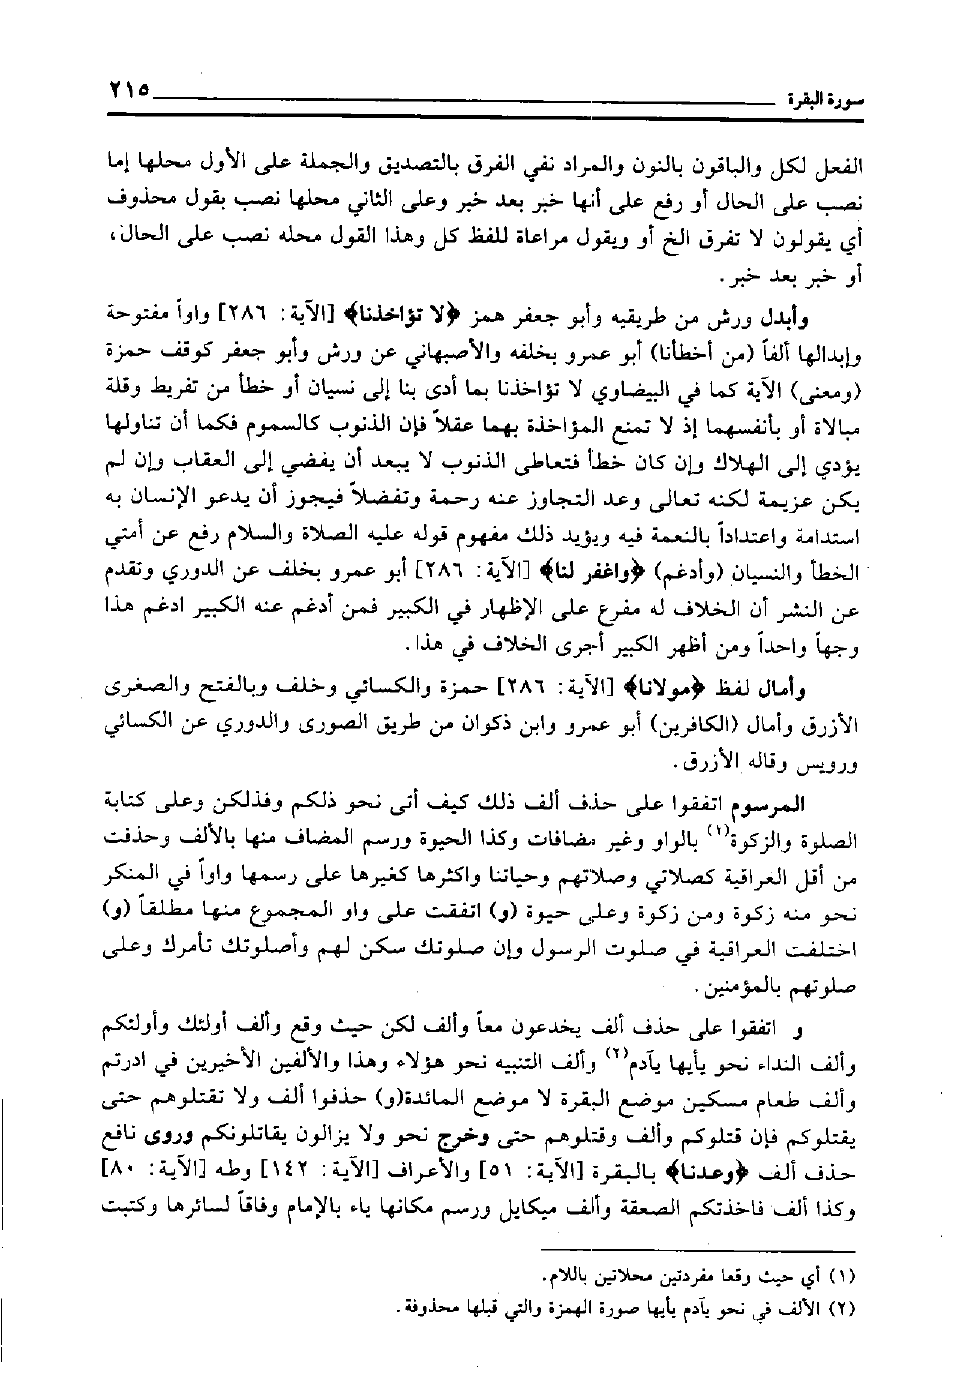 سورة البقرة ٢١٥
الفعل لكل والباقون بالنون والمراد نفي الفرق بالتصديق والجملة على الأول محلها إما
نصب على الحال أو رفع على أنها خبر بعد خبر وعلى الثاني محلها نصب بقول محذوف
أي يقولون لا تفرق الخ أو ويقول مراعاة للفظ كل وهذا القول محله نصب على الحال،
أو خبر بعد خبر.
وأبدل ورش من طريقيه وأبو جعفر همز ﴿لا تؤاخذنا﴾ [الآية: ٢٨٦] واواً مفتوحة
وإبدالها ألفاً (من أخطأنا) أبو عمرو بخلفه والأصبهاني عن ورش وأبو جعفر كوقف حمزة
(ومعنى) الآية كما في البيضاوي لا تؤاخذنا بما أدى بنا إلى نسيان أو خطأ من تفريط وقلة
مبالاة أو بأنفسهما إذ لا تمنع المؤاخذة بهما عقلاً فإن الذنوب كالسموم فكما أن تناولها
يؤدي إلى الهلاك وإن كان خطأ فتعاطى الذنوب لا يبعد أن يفضي إلى العقاب وإن لم
يكن عزيمة لكنه تعالى وعد التجاوز عنه رحمة وتفضلاً فيجوز أن يدعو الإنسان به
استدامة واعتداداً بالنعمة فيه ويؤيد ذلك مفهوم قوله عليه الصلاة والسلام رفع عن أمتي
الخطأ والنسيان (وأدغم) ﴿واغفر لنا﴾ [الآية: ٢٨٦] أبو عمرو بخلف عن الدوري وتقدم
عن النشر أن الخلاف له مفرع على الإظهار في الكبير فمن أدغم عنه الكبير ادغم هذا
وجهاً واحداً ومن أظهر الكبير أجرى الخلاف في هذا.
وأمال لفظ ﴿مولانا﴾ [الآية: ٢٨٦] حمزة والكسائي وخلف وبالفتح والصغرى
الأزرق وأمال (الكافرين) أبو عمرو وابن ذكوان من طريق الصورى والدوري عن الكسائي
ورويس وقاله الأزرق.
المرسوم اتفقوا على حذف ألف ذلك كيف أتى نحو ذلكم وفذلكن وعلى كتابة
الصلوة والزكوة(١) بالواو وغير مضافات وكذا الحيوة ورسم المضاف منها بالألف وحذفت
من أقل العراقية كصلاتي وصلاتهم وحياتنا واكثرها كغيرها على رسمها واواً في المنكر
نحو منه زكوة ومن زكوة وعلى حيوة (و) اتفقت على واو المجموع منها مطلقاً (و)
اختلفت العراقية في صلوت الرسول وإن صلوتك سكن لهم وأصلوتك تأمرك وعلى
صلوتهم بالمؤمنين.
و اتفقوا على حذف ألف يخدعون معاً وألف لكن حيث وقع وألف أولئك وأولئكم
وألف النداء نحو يأيها يآدم(٢) وألف التنبيه نحو هؤلاء وهذا والألفين الأخيرين في ادرتم
وألف طعام مسكين موضع البقرة لا موضع المائدة(و) حذفوا ألف ولا تقتلوهم حتى
يقتلوكم فإن قتلوكم وألف وقتلوهم حتى وخرج نحو ولا يزالون يقاتلونكم وروى نافع
حذف ألف ﴿وعدنا﴾ بالبقرة [الآية: ٥١] والأعراف [الآية: ١٤٢] وطه [الآية: ٨٠]
وكذا ألف فاخذتكم الصعقة وألف ميكايل ورسم مكانها ياء بالإمام وفاقاً لسائرها وكتبت
(١) أي حيث وقعا مفردتين محلاتين باللام.
(٢) الألف في نحو يآدم يأيها صورة الهمزة والتي قبلها محذوفة.